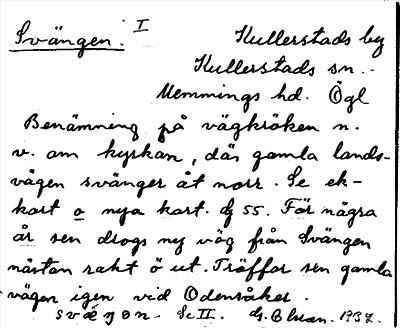 Svängen. I
Kullerstads by
Kullerstads sn.
Memmings hd. Ögl
Benämning på vägkröken n.
v. om kyrkan, där gamla lands-
vägen svänger åt norr. Se ek-
kart o nya kart. 55. För några
år sen drogs ny väg från Svängen
nästan rakt ö ut. Träffar sen gamla
vägen igen vid Odensåker.
Se II. 1937.